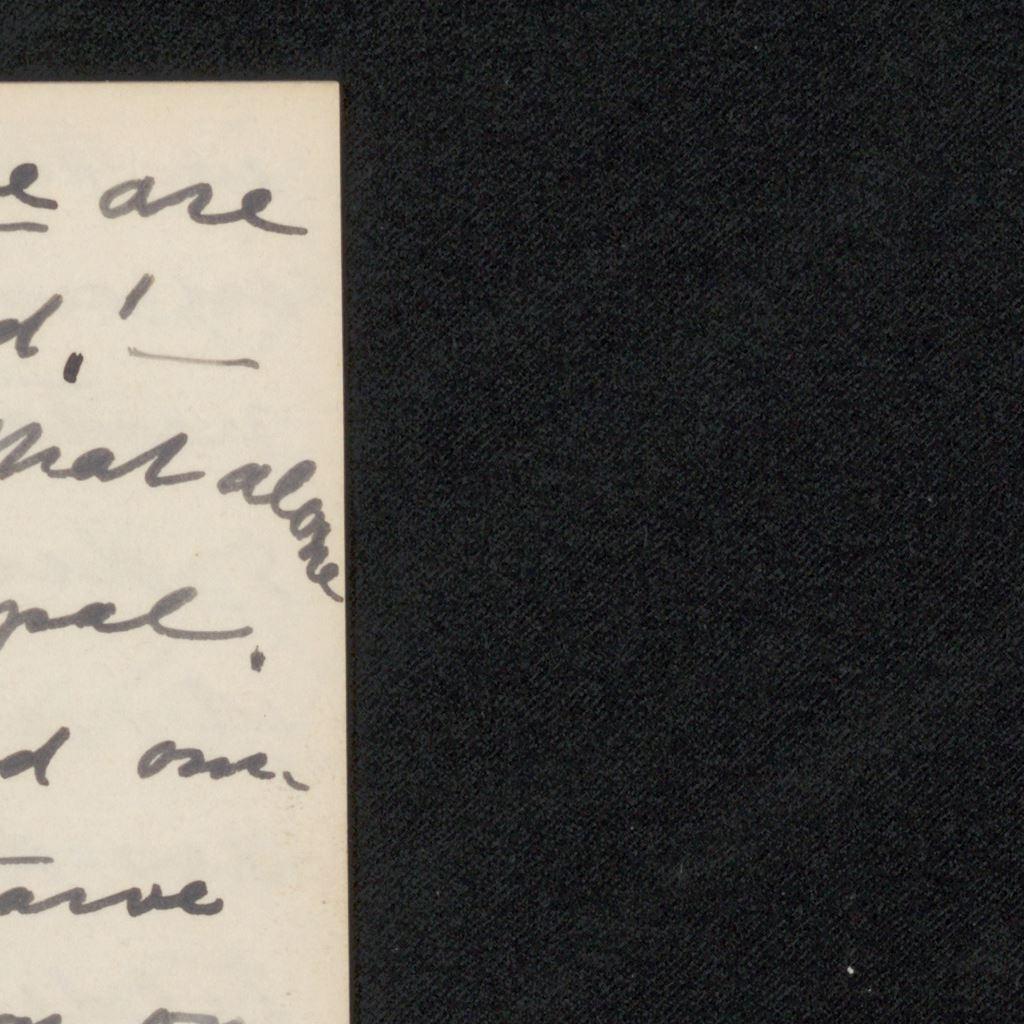 e are
d! —
that alone
pal.
d our
tarve